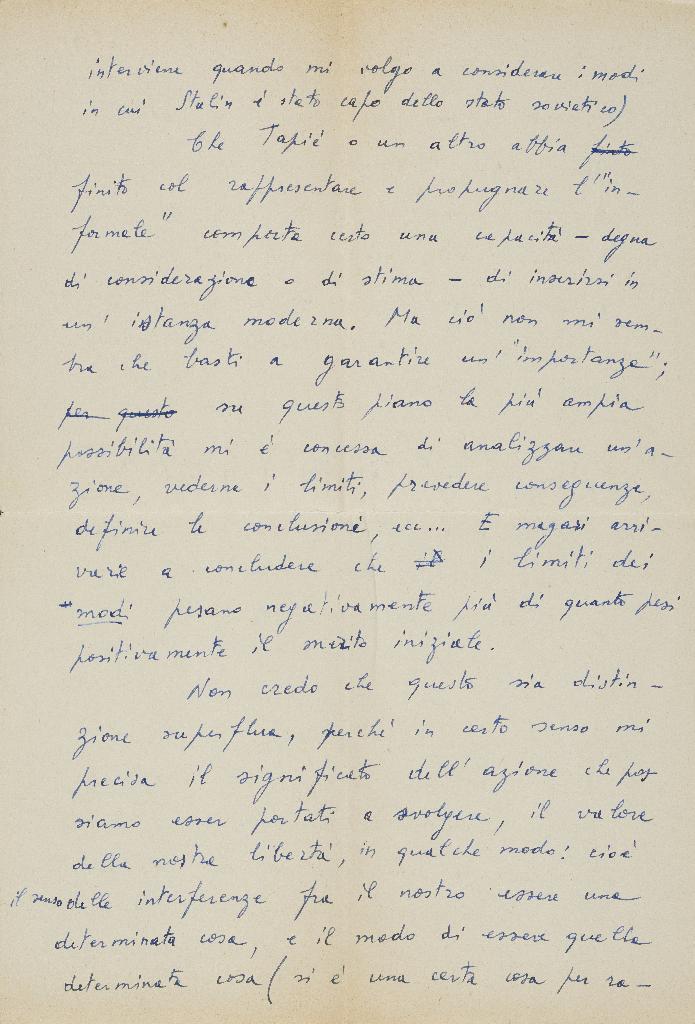 interviene quando mi volgo a considerare i modi
in cui Stalin è stato capo dello stato sovietico)
Che Tapié o un altro abbia finito
finito col rappresentare e propugnare l'"in-
formale" comporta certo una capacità – degna
di considerazione o di stima – di inserirsi in
un' istanza moderna. Ma ciò non mi sem-
bra che basti a garantire un' "importanza";
per questo su questo piano la più ampia
possibilità mi è concessa di analizzare un'a-
zione, vederne i limiti, prevedere conseguenze,
definire le conclusioni, ecc... E magari arri-
vare a concludere che il i limiti dei
modi pesano negativamente più di quanto pesi
positivamente il merito iniziale.
Non credo che questa sia distin-
zione superflua, perché in certo senso mi
precisa il significato dell' azione che pos
siamo esser portati a svolgere, il valore
della nostra libertà, in qualche modo: cioè
il senso delle interferenze fra il nostro essere una
determinata cosa, e il modo di essere quella
determinata cosa (si è una certa cosa per ra-